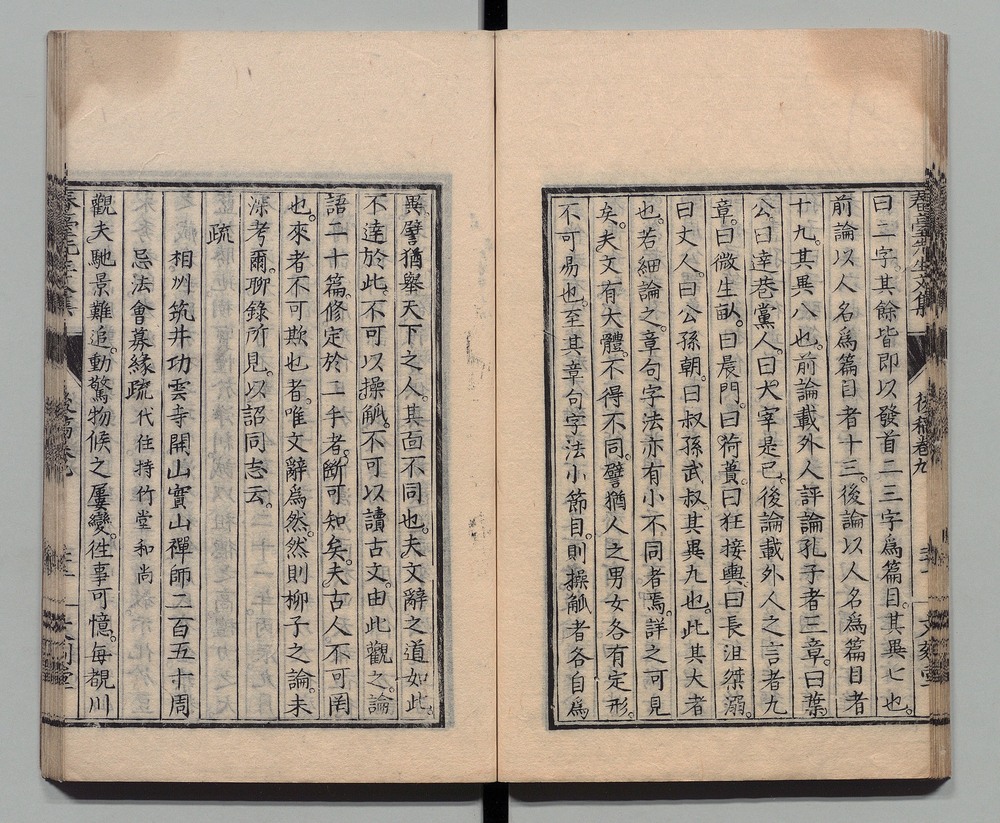 曰二字。其餘皆即以發首二三字爲篇目。其異七也。
前論以人名爲篇目者十三。後論以人名爲篇目者
十九。其異八也。前論載外人評論孔子者三章。曰葉
公。曰達巷黨人。曰大宰是已。後論載外人之言者九
章。曰微生畝。曰晨門。曰荷蕢。曰狂接輿。曰長沮桀溺。
曰丈人。曰公孫朝。曰叔孫武叔。其異九也。此其大者
也。若細論之。章句字法亦有小不同者焉。詳之可見
矣。夫文有大體。不得不同。譬猶人之男女各有定形。
不可易也。至其章句字法小節目。則操觚者各自爲
異。譬猶舉天下之人。其面不同也。夫文辭之道如此。
不達於此。不可以操觚。不可以讀古文。由此觀之。論
語二十篇。修定於二手者。斷可知矣。夫古人不可罔
也。來者不可欺也者。唯文辭爲然。然則柳子之論。未
深考爾。聊錄所見。以詔同志云。
疏
相州筑井功雲寺開山實山禪師二百五十周
忌法會募緣疏代住持竹堂和尚
觀夫馳景難追。動驚物候之屢變。徃事可憶。每覩川